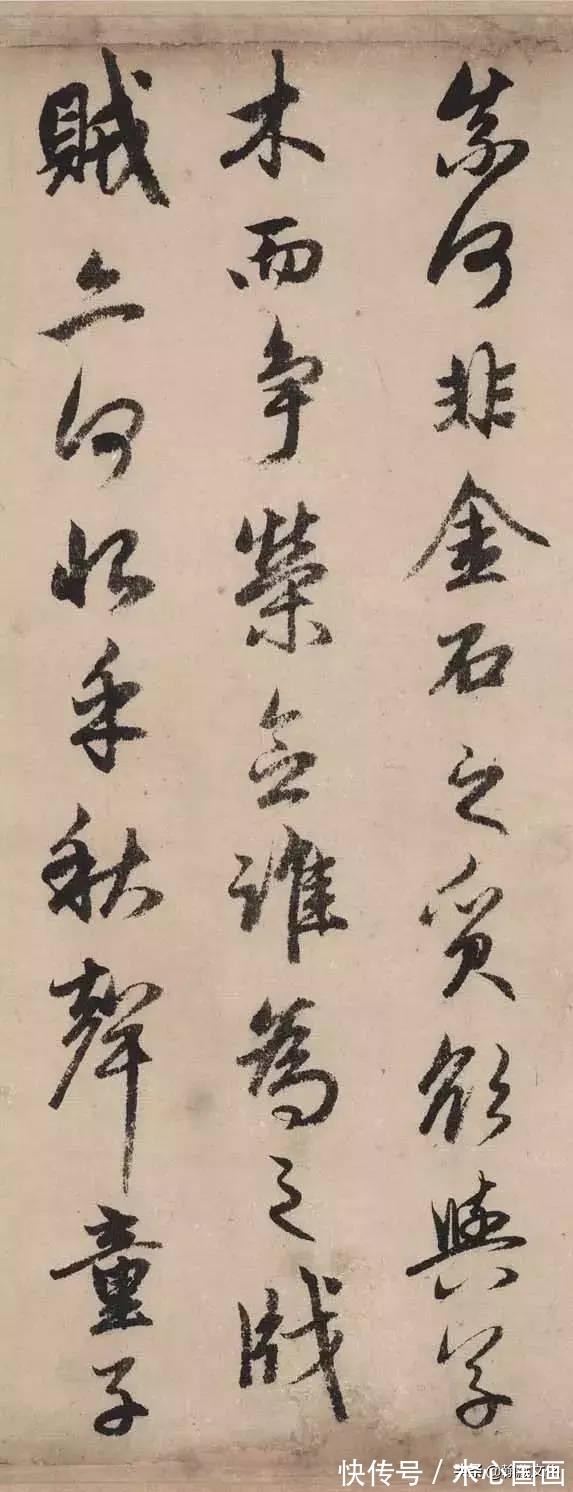 奈何非金石之質欲與草
木而争榮念誰為之戕
賊亦何恨乎秋聲童子
快传号 / 木心国画